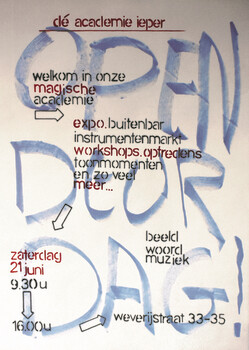 dé academie ieper
OPEN
welkom in onze
magische
academie
expo.buitenbar
instrumentenmarkt
workshops.optredens
toonmomenten
en zo veel
meer...
DEUR
DAG!
beeld
woord
muziek
zaterdag
21 juni
9.30u
16.00u
weverijstraat 33-35